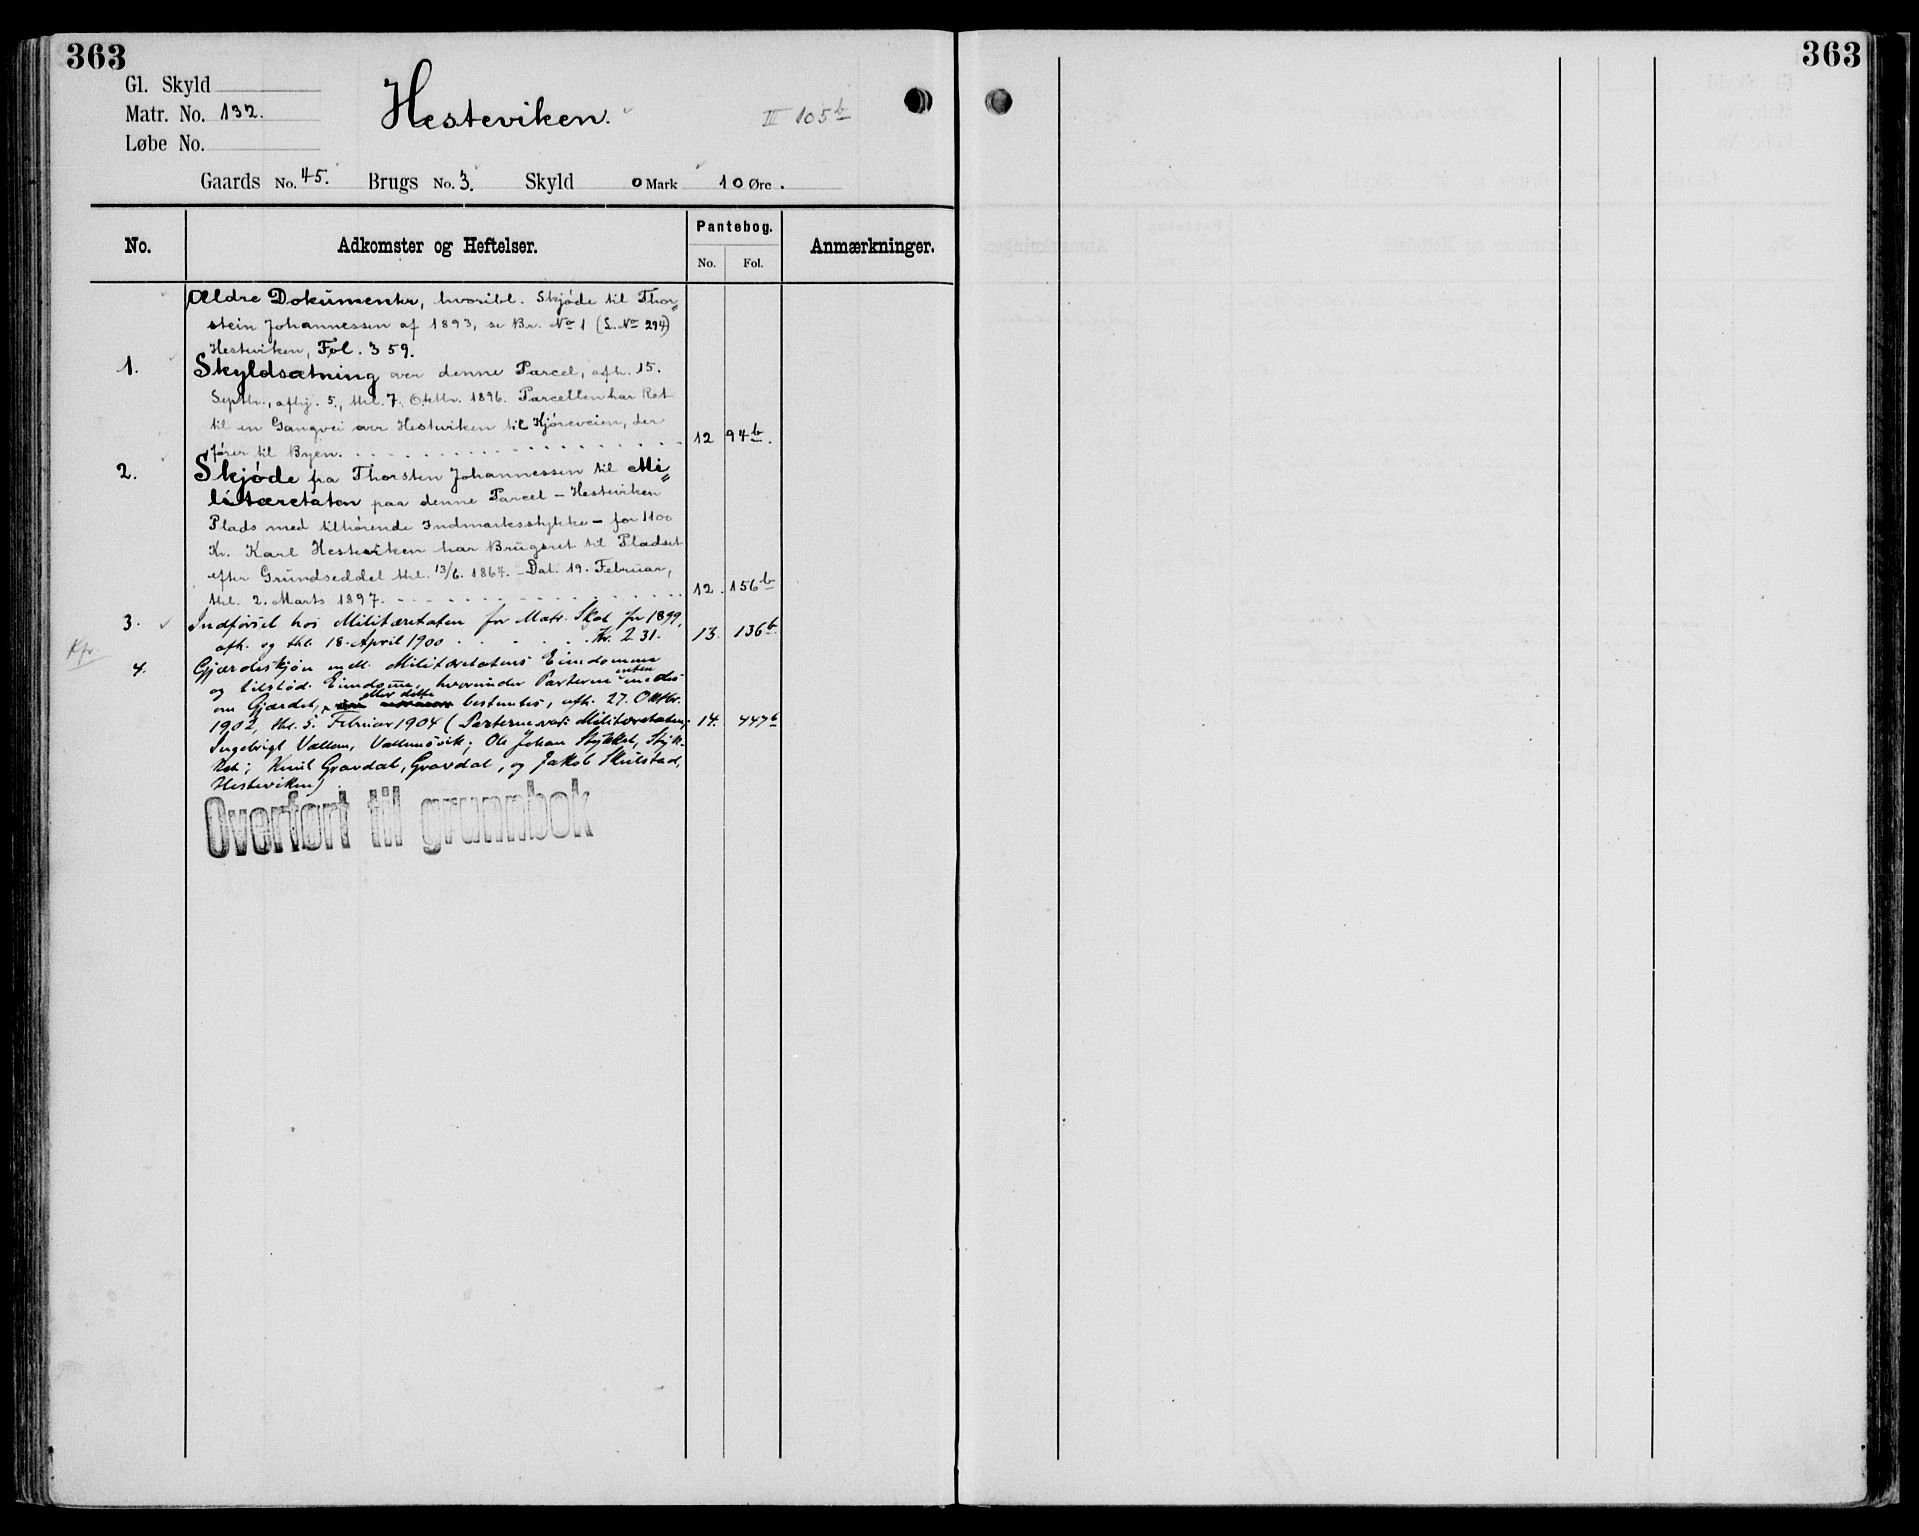 363
363
Gl. Skyld
Matr. No. 132.
Hesteviken.
III 105b
Løbe No.
Gaards No. 45. Brugs No. 3. Skyld 0 Mark 10 Øre.
No.
Adkomster og Heftelser.
Pantebog.
No.
Fol.
Anmærkninger.
Ældre Dokumenter, hvoribl. Skjøde til Thor=
stein Johannessen af 1893, se Br. No 1 (L. No 294)
Hesteviken, Fol. 359.
1. Skyldsætning over denne Parcel, afh. 15.
Septbr., afhj. 5., thl. 7. Oktbr. 1896. Parcellen har Ret
til en Gangvei over Hesteviken til Kjøreveien, der
fører til Byen. 12 94b.
2. Skjøde fra Thorsten Johannessen til Mi=
litæretaten paa denne Parcel – Hesteviken
Plads med tilhørende Indmarksstykke – for 1100
Kr. Karl Hesteviken har Brugsret til Pladset
efter Grundseddel thl. 13/6. 1864. – Dat. 19. Februar,
thl. 2. Marts 1897. 12. 156b
3. Indførsel hos Militæretaten for Matr. Skat for 1899,
afh. og thl. 18. April 1900 Kr. 2.31. 13. 136b
Kfr.
4. Gjærdeskjøn mell. Militæretatens Eiendomme
og tilstød. Eiendomme, hvorunder Parterne enten enedes
om Gjærdet, eller dette bestemtes, afh. 27. Oktbr.
1902, thl. 5. Februar 1904 (Parterne var: Militæretaten, 14. 447b
Ingebrigt Vallem, Vallemsvik; Ole Johan Stykket, Styk-
ket; Knut Gravdal, Gravdal, og Jakob Skilstad,
Hesteviken)
Overført til grunnbok